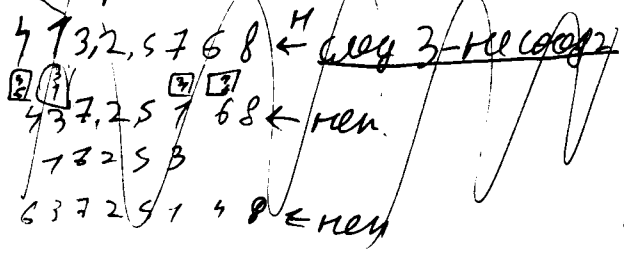 4 1 3, 2, 5 7 6 8 ← н след 3 - не сообр
4 3 7, 2, 5 1 6 8 ← неп.
1 7 2 5 3
6 3 7 2 5 1 4 8 ← неп